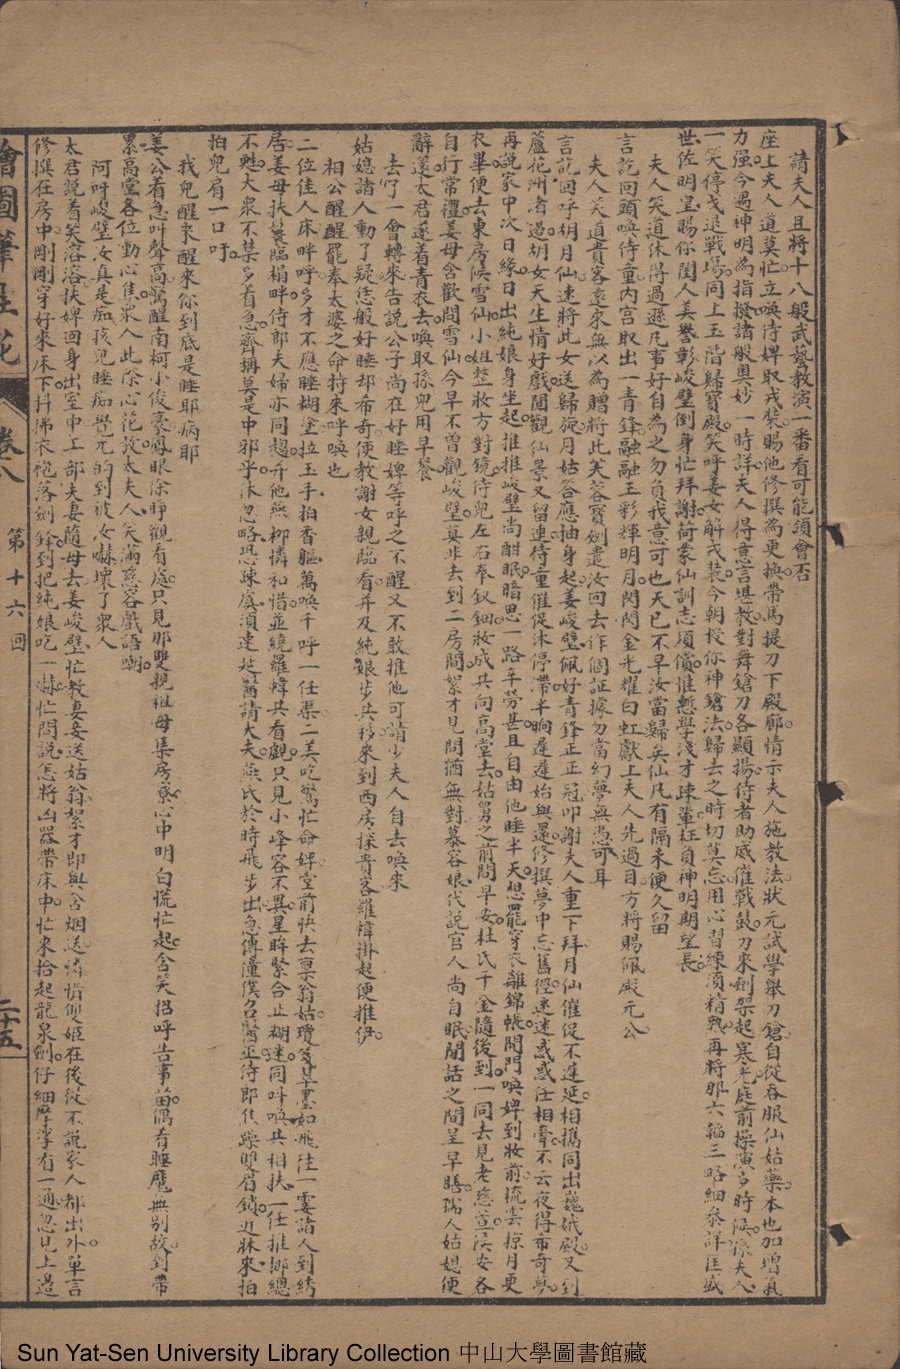 請夫人且將十八般武藝教演一番看可能領會否
座上夫人道莫忙立喚侍婢取戎裝賜他修撰為更換帶馬提刀下殿廊情示夫人施教法狀元試學舉刀鎗自從吞服仙姑藥本也加增氣
力强今過神明為指撥諸般奧妙一時詳夫人得意言堪教對舞鎗刀各顯揚侍者助威催戰鼓刀來劍架起寒光庭前操演多時候彖夫人
一笑停戈退戰場同上玉階歸寶殿笑呼姜女解戎裝今朝授你神鎗法歸去之時切莫忘用心習練須精熟再將那六韜三略細參詳匡盛
世佐明皇賜你閨人美譽彰峻璧倒身忙拜謝荷蒙仙訓志須償惟慙學淺才疎輩枉負神明期望長
夫人笑道休得過遜凡事好自為之勿負我意可也天已不早汝當歸矣仙凡有隔未便久留
言訖回頭喚侍童內宮取出一青鋒融融玉彩輝明月閃閃金光耀白虹獻上夫人先過目方將賜佩殿元公
夫人笑道貴客遠來無以為贈將此芙蓉寶劍遣汝回去作個証據勿當幻夢無憑可耳
言訖回呼胡月仙速將此女送歸旋月姑答應抽身起姜峻璧佩好青鋒正正冠叩謝夫人重下拜月仙催促不遲延相攜同出巍峨殿又到
蘆花洲渚過胡女天生情好戲閒觀仙景又留連侍童催促休停滯半晌遲遲始與還修撰夢中忘舊徑迷迷惑惑任相牽不云夜得希奇夢
再說家中次日緣日出純娘身坐起推推峻璧尚酣眠暗思一路辛勞甚且自由他睡半天想罷穿衣離錦帳開門喚婢到妝前梳雲掠月更
衣畢便去東房候雪仙小姐整妝方對鏡侍兒左右奉釵鈿妝成共向高堂去姑舅之前問早安杜氏千金隨後到一同去見老慈萱候安各
自行常禮姜母含歡問雪仙今早不曾觀峻璧莫非去到二房間絮才見問猶無對慕容娘代說官人尚自眠閒話之間呈早膳瑞人姑媳便
辭還太君遂着青衣去喚取孫兒用早餐
去了一會轉來告說公子尚在好睡婢等呼之不醒又不敢推他可請少夫人自去喚來
姑媳諸人動了疑恁般好睡却希奇便教謝女親臨看并及純娘步共移來到西房探貴客羅幃掛起便推伊
相公醒醒罷奉太婆之命特來呼喚也
二位佳人床畔呼多才不應睡糊塗拉玉手拍香軀萬喚千呼一任渠二美吃驚忙命婢堂前快去稟翁姑瓊箋草墨如飛往一霎諸人到綉
居姜母扶鬟臨榻畔侍郎夫婦亦同趨升他燕柳憐和惜並繞羅幃共看觀只見小峰容不異星眸緊合止糊塗同呌喚共相扶一任推挪總
不甦大衆不禁多着急齊稱莫是中邪乎休忽略恐疎虞須速延醫請大夫燕氏於時飛步出急傳僮僕召醫巫侍郎焦躁雙眉鎖近牀來拍
拍兒肩一口吁
我兒醒來醒來你到底是睡耶病耶
姜公着急叫聲高驚醒南柯小俊豪鳳眼徐睜觀看處只見那雙親祖母集房寮心中明白慌忙起含笑招呼告事苗偶看睡魔無別故到帶
累高堂各位勤心焦衆人此際心花放太夫人笑滿慈容戲語嘲
阿呀峻璧汝真是痴孩兒睡痴覺兀的到被汝嚇壞了衆人
太君說着笑溶溶扶婢回身出室中工部夫妻隨母去姜峻璧忙教妻妾送姑翁絮才即與含烟送憐惜雙姬在後從不說家人都出外單言
修撰在房中剛剛穿好來床下抖拂衣袍落劍鋒到把純娘吃一嚇忙問說怎將凶器帶床中忙來拾起龍泉劍仔細摩挲有一通忽見上邊
繪圖筆生花
卷八
第十六回
二十五
Sun Yat-Sen University Library Collection 中山大學圖書館藏